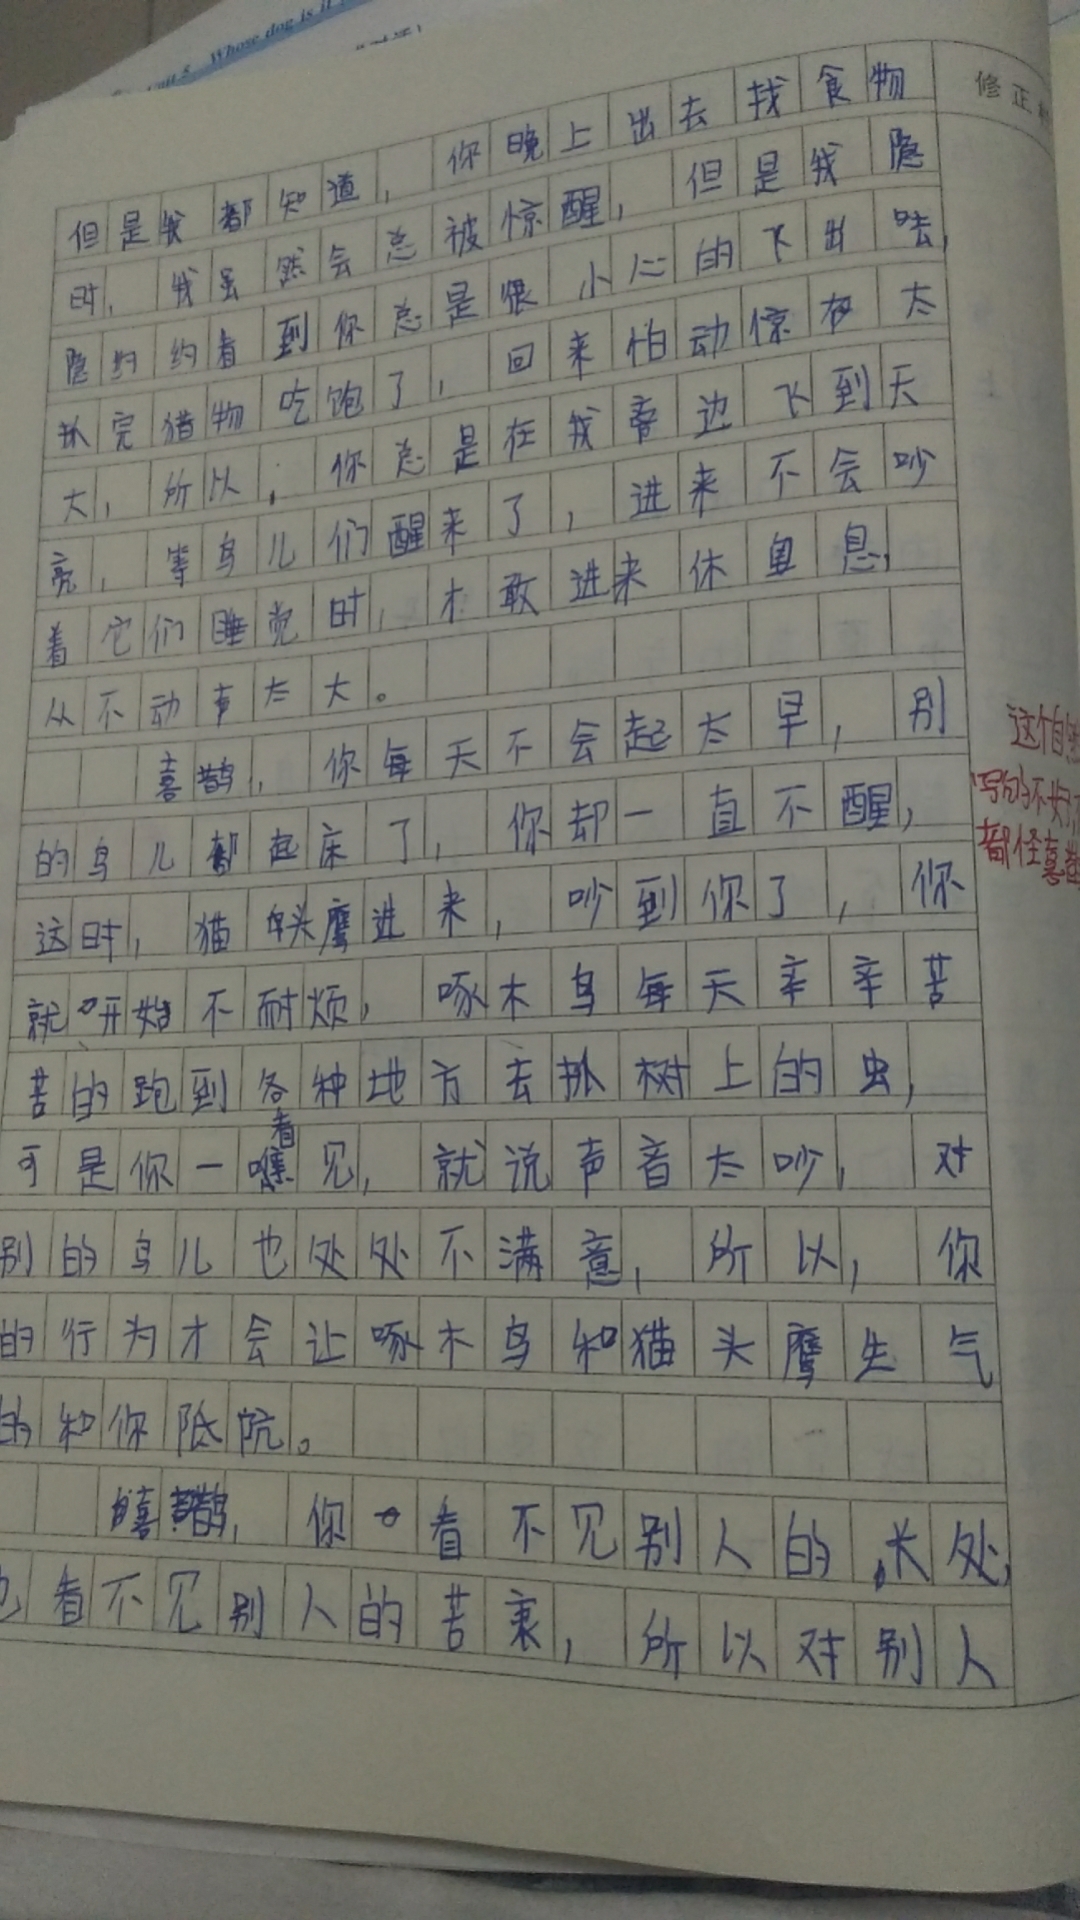 Whose dog is it
修正
但是我都知道，你晚上出去找食物
时，我虽然会总被惊醒，但是我隐
隐约约看到你总是很小心的飞出哇，
抓完猎物吃饱了，回来怕动惊夜太
大，所以，你总是在我旁边飞到天
亮，等鸟儿们醒来了，进来不会吵
着它们睡觉时，才敢进来休息息，
从不动声太大。
喜鹊，你每天不会起太早，别
的鸟儿都起床了，你却一直不醒，
这时，猫头鹰进来，吵到你了，你
就开始不耐烦，啄木鸟每天辛辛苦
苦的跑到各种地方去抓树上的虫，
可是你一看见，就说声音太吵，对
别的鸟儿也处处不满意，所以，你
的行为才会让啄木鸟和猫头鹰生气
的和你抵抗。
喜鹊，你看不见别人的长处，
也看不见别人的苦衷，所以对别人
这个自然
写的不好，
都怪喜鹊